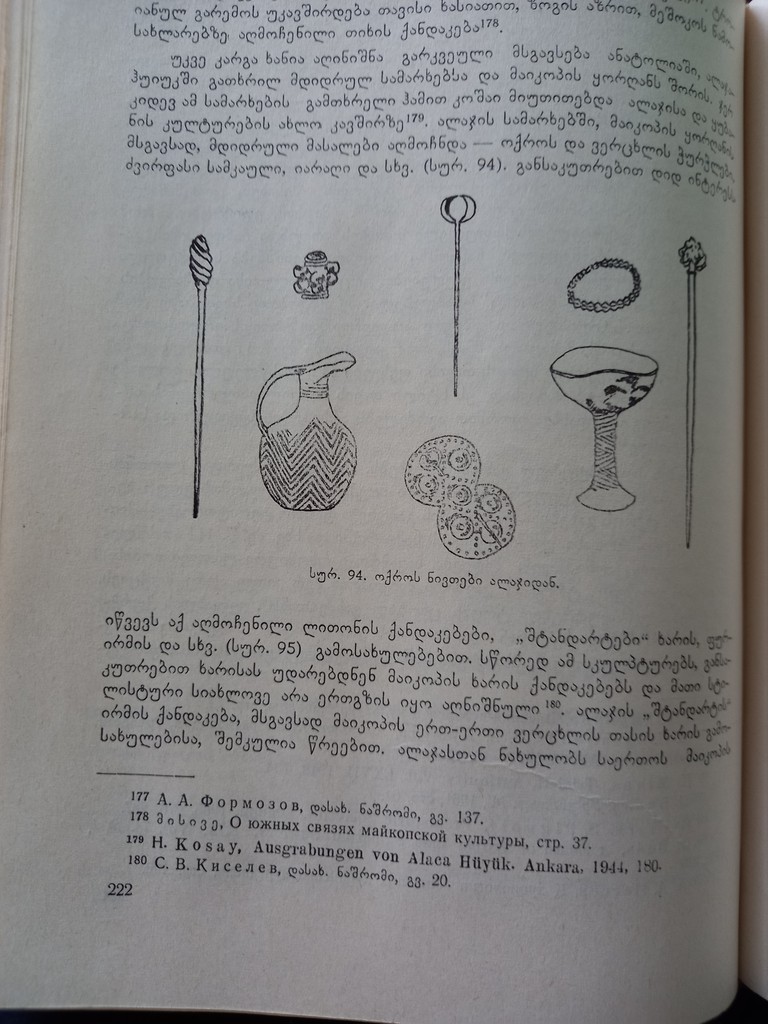 იანულ გარემოს უკავშირდება თავისი ხასიათით, ზოგის აზრით, მეშოკოს
სახლარებზე აღმოჩენილი თიხის ქანდაკება¹⁷⁸.
უკვე კარგა ხანია აღინიშნა გარკვეული მსგავსება ანატოლიაში,
ჰუიუკში გათხრილ მდიდრულ სამარხებსა და მაიკოპის ყორღანს შორის.
კიდევ ამ სამარხების გამთხრელი ჰამით კოშაი მიუთითებდა ალაჯისა და
ნის კულტურების ახლო კავშირზე¹⁷⁹. ალაჯის სამარხებში, მაიკოპის ყორღანის
მსგავსად, მდიდრული მასალები აღმოჩნდა — ოქროს და ვერცხლის ჭურჭლები,
ძვირფასი სამკაული, იარაღი და სხვ. (სურ. 94). განსაკუთრებით დიდ ინტერესს
სურ. 94. ოქროს ნივთები ალაჯიდან.
იწვევს აქ აღმოჩენილი ლითონის ქანდაკებები, „შტანდარტები“ ხარის, ფურ-
ირმის და სხვ. (სურ. 95) გამოსახულებებით. სწორედ ამ სკულპტურებს, განსა-
კუთრებით ხარისას უდარებდნენ მაიკოპის ხარის ქანდაკებებს და მათი სტი-
ლისტური სიახლოვე არა ერთგზის იყო აღნიშნული¹⁸⁰. ალაჯის „შტანდარტის“
ირმის ქანდაკება, მსგავსად მაიკოპის ერთ-ერთი ვერცხლის თასის ხარის გამო-
სახულებისა, შემკულია წრეებით. ალაჯასთან ნახულობს საერთოს მაიკოპის
¹⁷⁷ А. А. Формозов, დასახ. ნაშრომი, გვ. 137.
¹⁷⁸ მისივე, О южных связях майкопской культуры, стр. 37.
¹⁷⁹ H. Kosay, Ausgrabungen von Alaca Hüyük. Ankara, 1944, 180.
¹⁸⁰ С. В. Киселев, დასახ. ნაშრომი, გვ. 20.
222